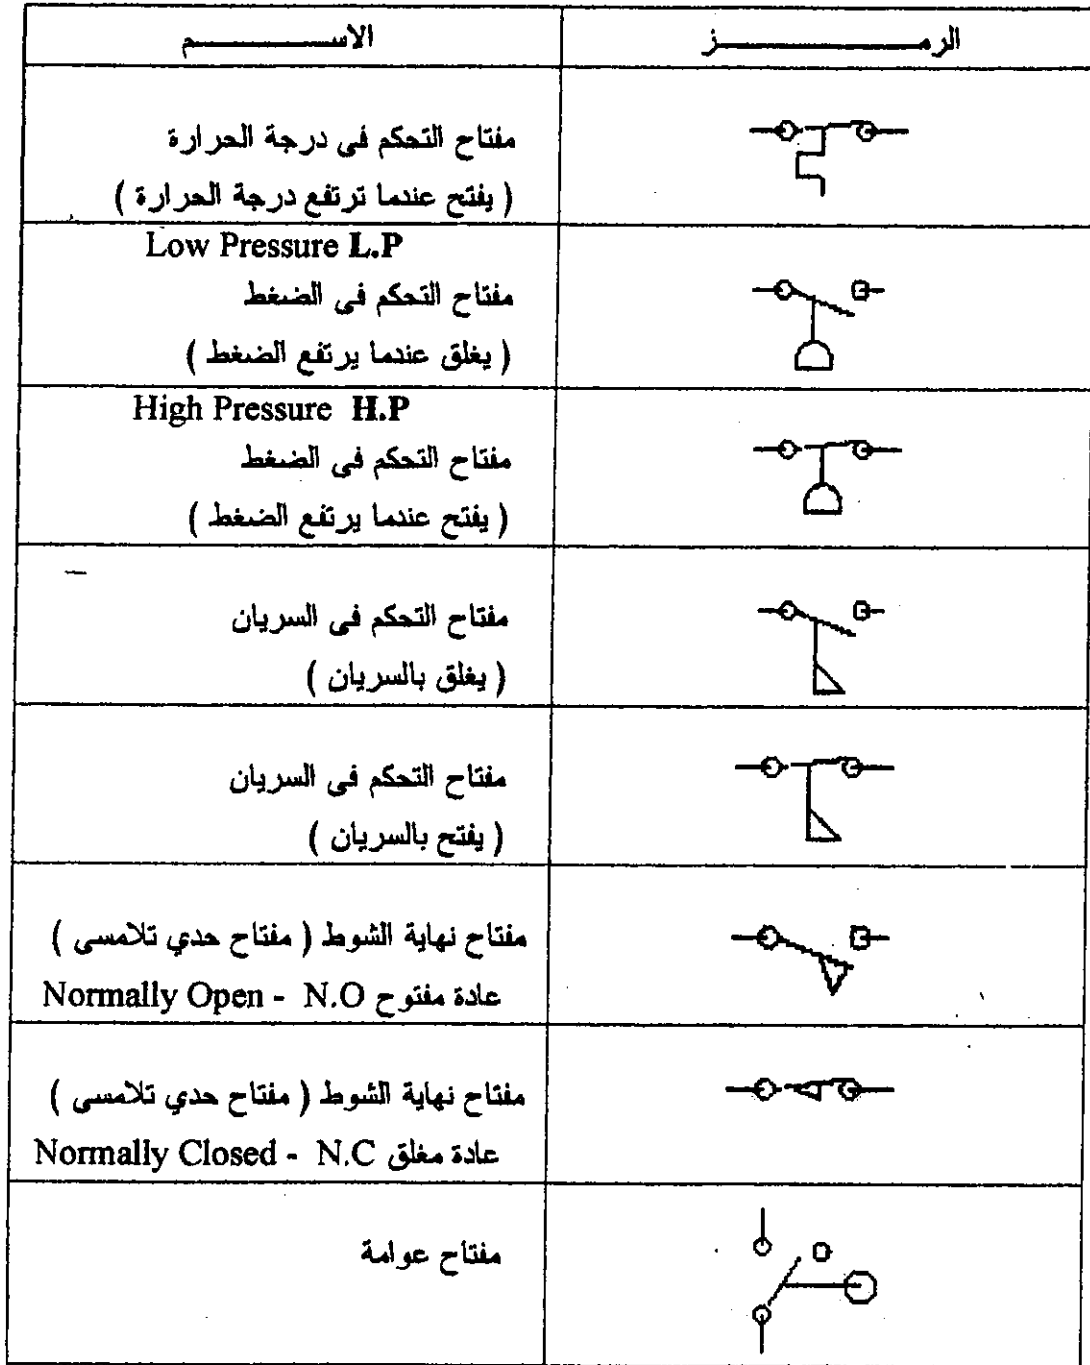 الرمـــــــز
الاســـــــم
مفتاح التحكم فى درجة الحرارة
( يفتح عندما ترتفع درجة الحرارة )
Low Pressure L.P
مفتاح التحكم فى الضغط
( يغلق عندما يرتفع الضغط )
High Pressure H.P
مفتاح التحكم فى الضغط
( يفتح عندما يرتفع الضغط )
مفتاح التحكم فى السريان
( يغلق بالسريان )
مفتاح التحكم فى السريان
( يفتح بالسريان )
مفتاح نهاية الشوط ( مفتاح حدي تلامسى )
عادة مفتوح Normally Open - N.O
مفتاح نهاية الشوط ( مفتاح حدي تلامسى )
عادة مغلق Normally Closed - N.C
مفتاح عوامة